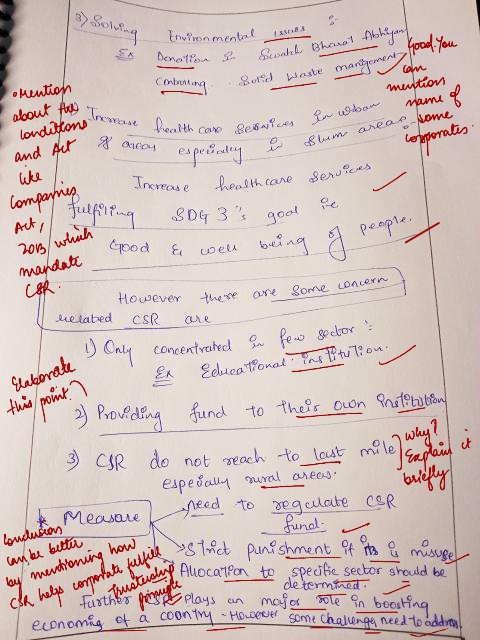 3) Solving Environmental issues :
Ex Donation in Swachh Bharat Abhiyan
Solid Waste management
Good. You
can
mention
name of
some
corporates.
• Mention
about the
conditions
and Act
like
Companies
Act,
2013 which
mandate
CSR.
Increase healthcare services in urban
& areas especially in slum areas.
Increase healthcare services
fulfiling SDG 3's goal ie
Good & well being of people.
However there are some concern
related CSR are
1) Only concentrated in few sector :
Ex Educational institution.
Elaborate
this point.
2) Providing fund to their own institution
3) CSR do not reach to last mile
especially rural areas.
why?
Explain it
briefly
* Measure
need to regulate CSR
fund.
Strict punishment if its is misuse
Allocation to specific sector should be
determined.
Conclusion
can be better
by mentioning how
CSR helps corporate fulfill
Trusteeship
principle
Further CSR plays an major role in boosting
economing of a country. However some challenges need to address.